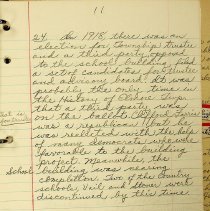 11
24. In 1918 there was an
election for township trustee
and a third party opposed
to the school building, filed
a set of candidates for trustee
and advisory board. It was
probably the only time in
the history of
that a third party was
on the ballot.
was a republican and he
was reelected with the help
of many democrats who were
favorable to the building
project. Meanwhile the
School building was nearing
completion. Two of the country
schools, Veil and Stover were
discontinued by this time.